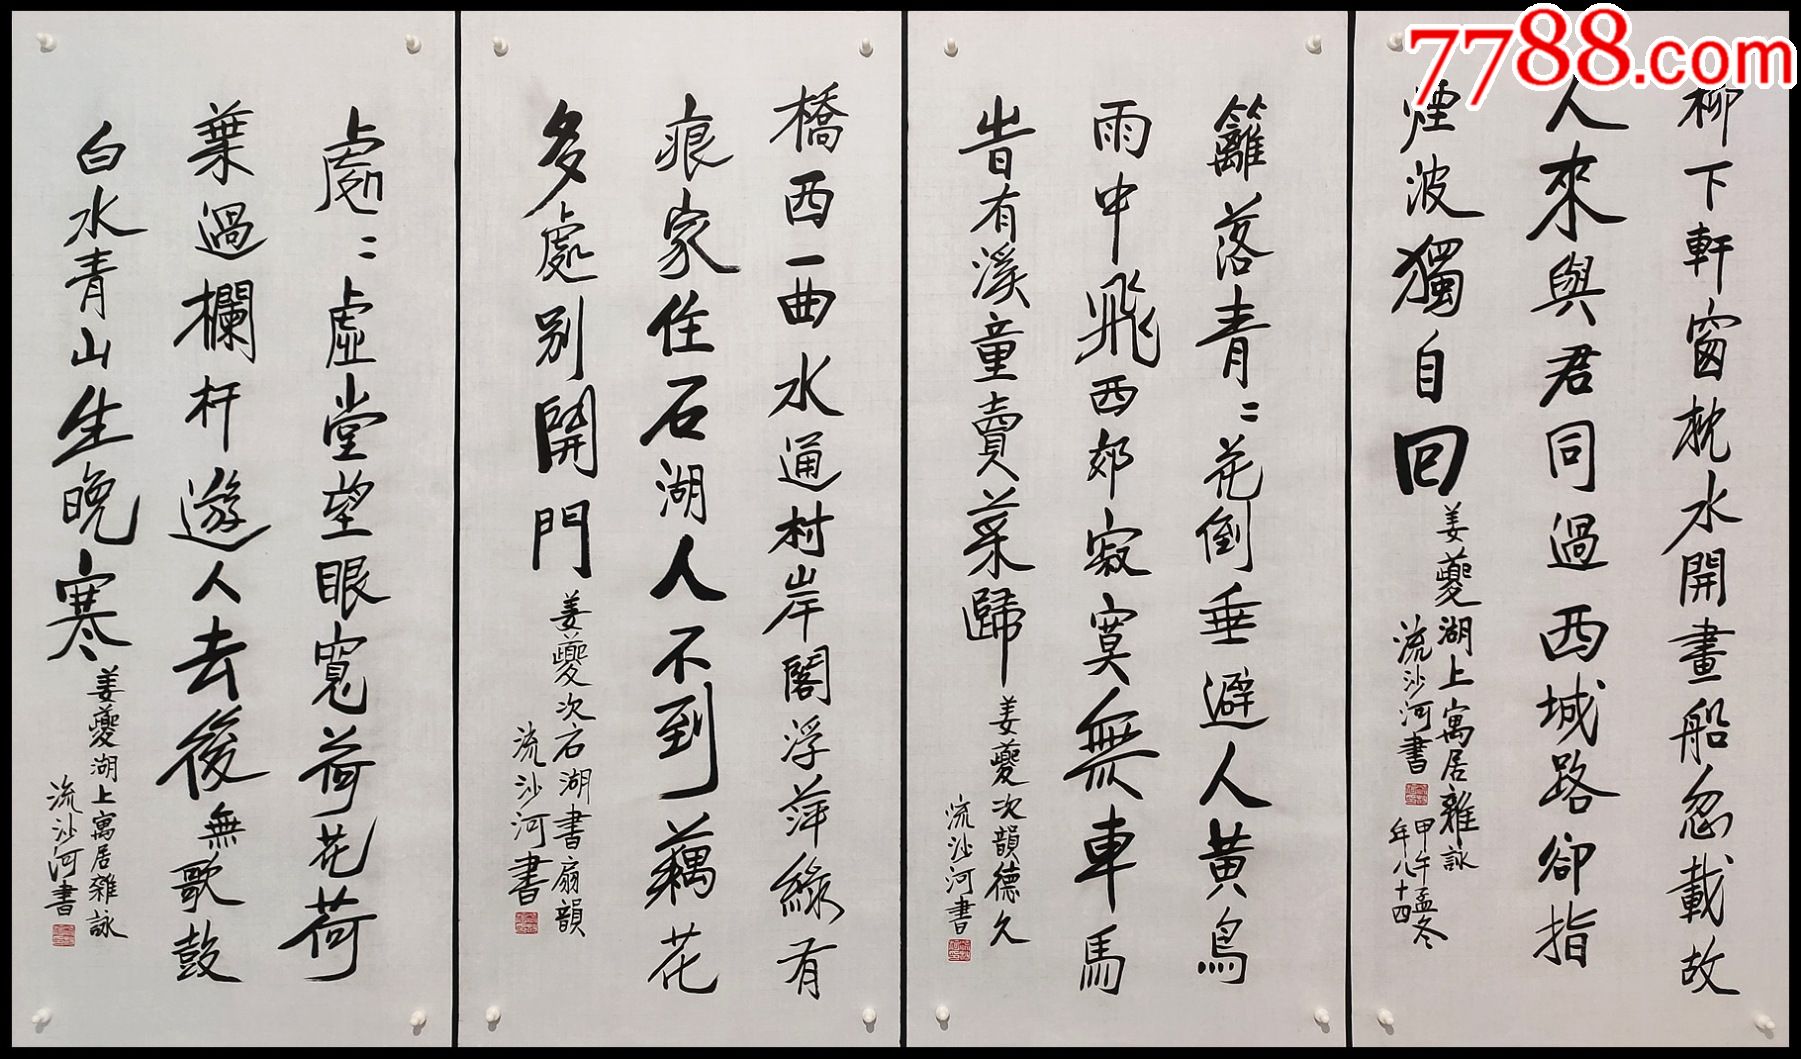 7788.com
柳下軒窗枕水開畫船忽載故
人來與君同過西城路卻指
煙波獨自回
姜夔湖上寓居雜詠
流沙河書
甲午孟冬
年八十四
籬落青〻花倒垂避人黄鳥
雨中飛西郊寂寞無車馬
時有溪童賣菜歸
姜夔次韻德久
流沙河書
橋西一曲水通村岸閣浮萍綠有
痕家住石湖人不到藕花
多處別開門
姜夔次石湖書扇韻
流沙河書
處〻虛堂望眼寬荷花荷
葉過欄杆遊人去後無歌鼓
白水青山生晚寒
姜夔湖上寓居雜詠
流沙河書